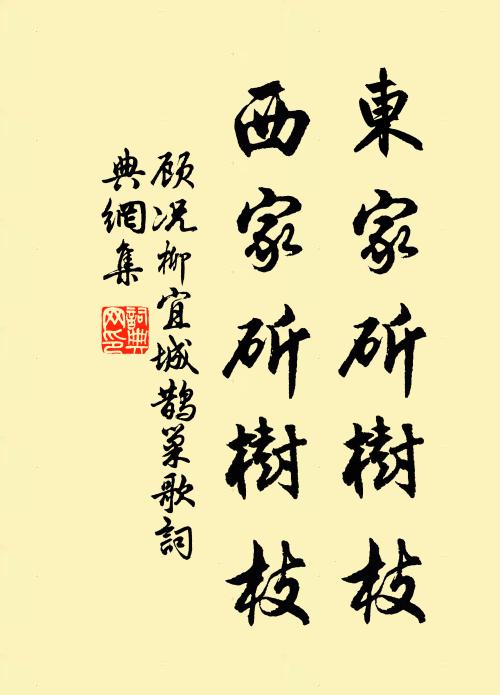 東家斫樹枝
西家斫樹枝
顾况柳宜城鵲巢歌詞
典網集
詞典
网印